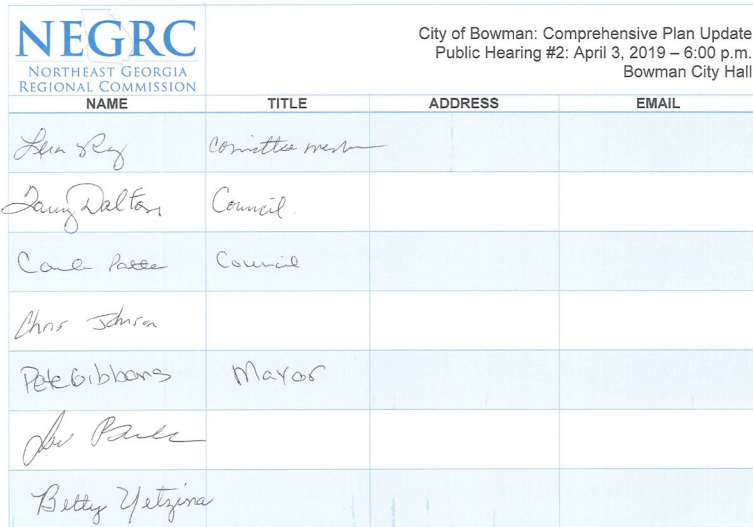 NEGRC
NORTHEAST GEORGIA
REGIONAL COMMISSION
City of Bowman: Comprehensive Plan Update
Public Hearing #2: April 3, 2019 – 6:00 p.m.
Bowman City Hall
NAME TITLE ADDRESS EMAIL
Ray Committee member
Dalton Council
Council
Chris Johnson
Pete Gibbons Mayor
Betty Yetzina